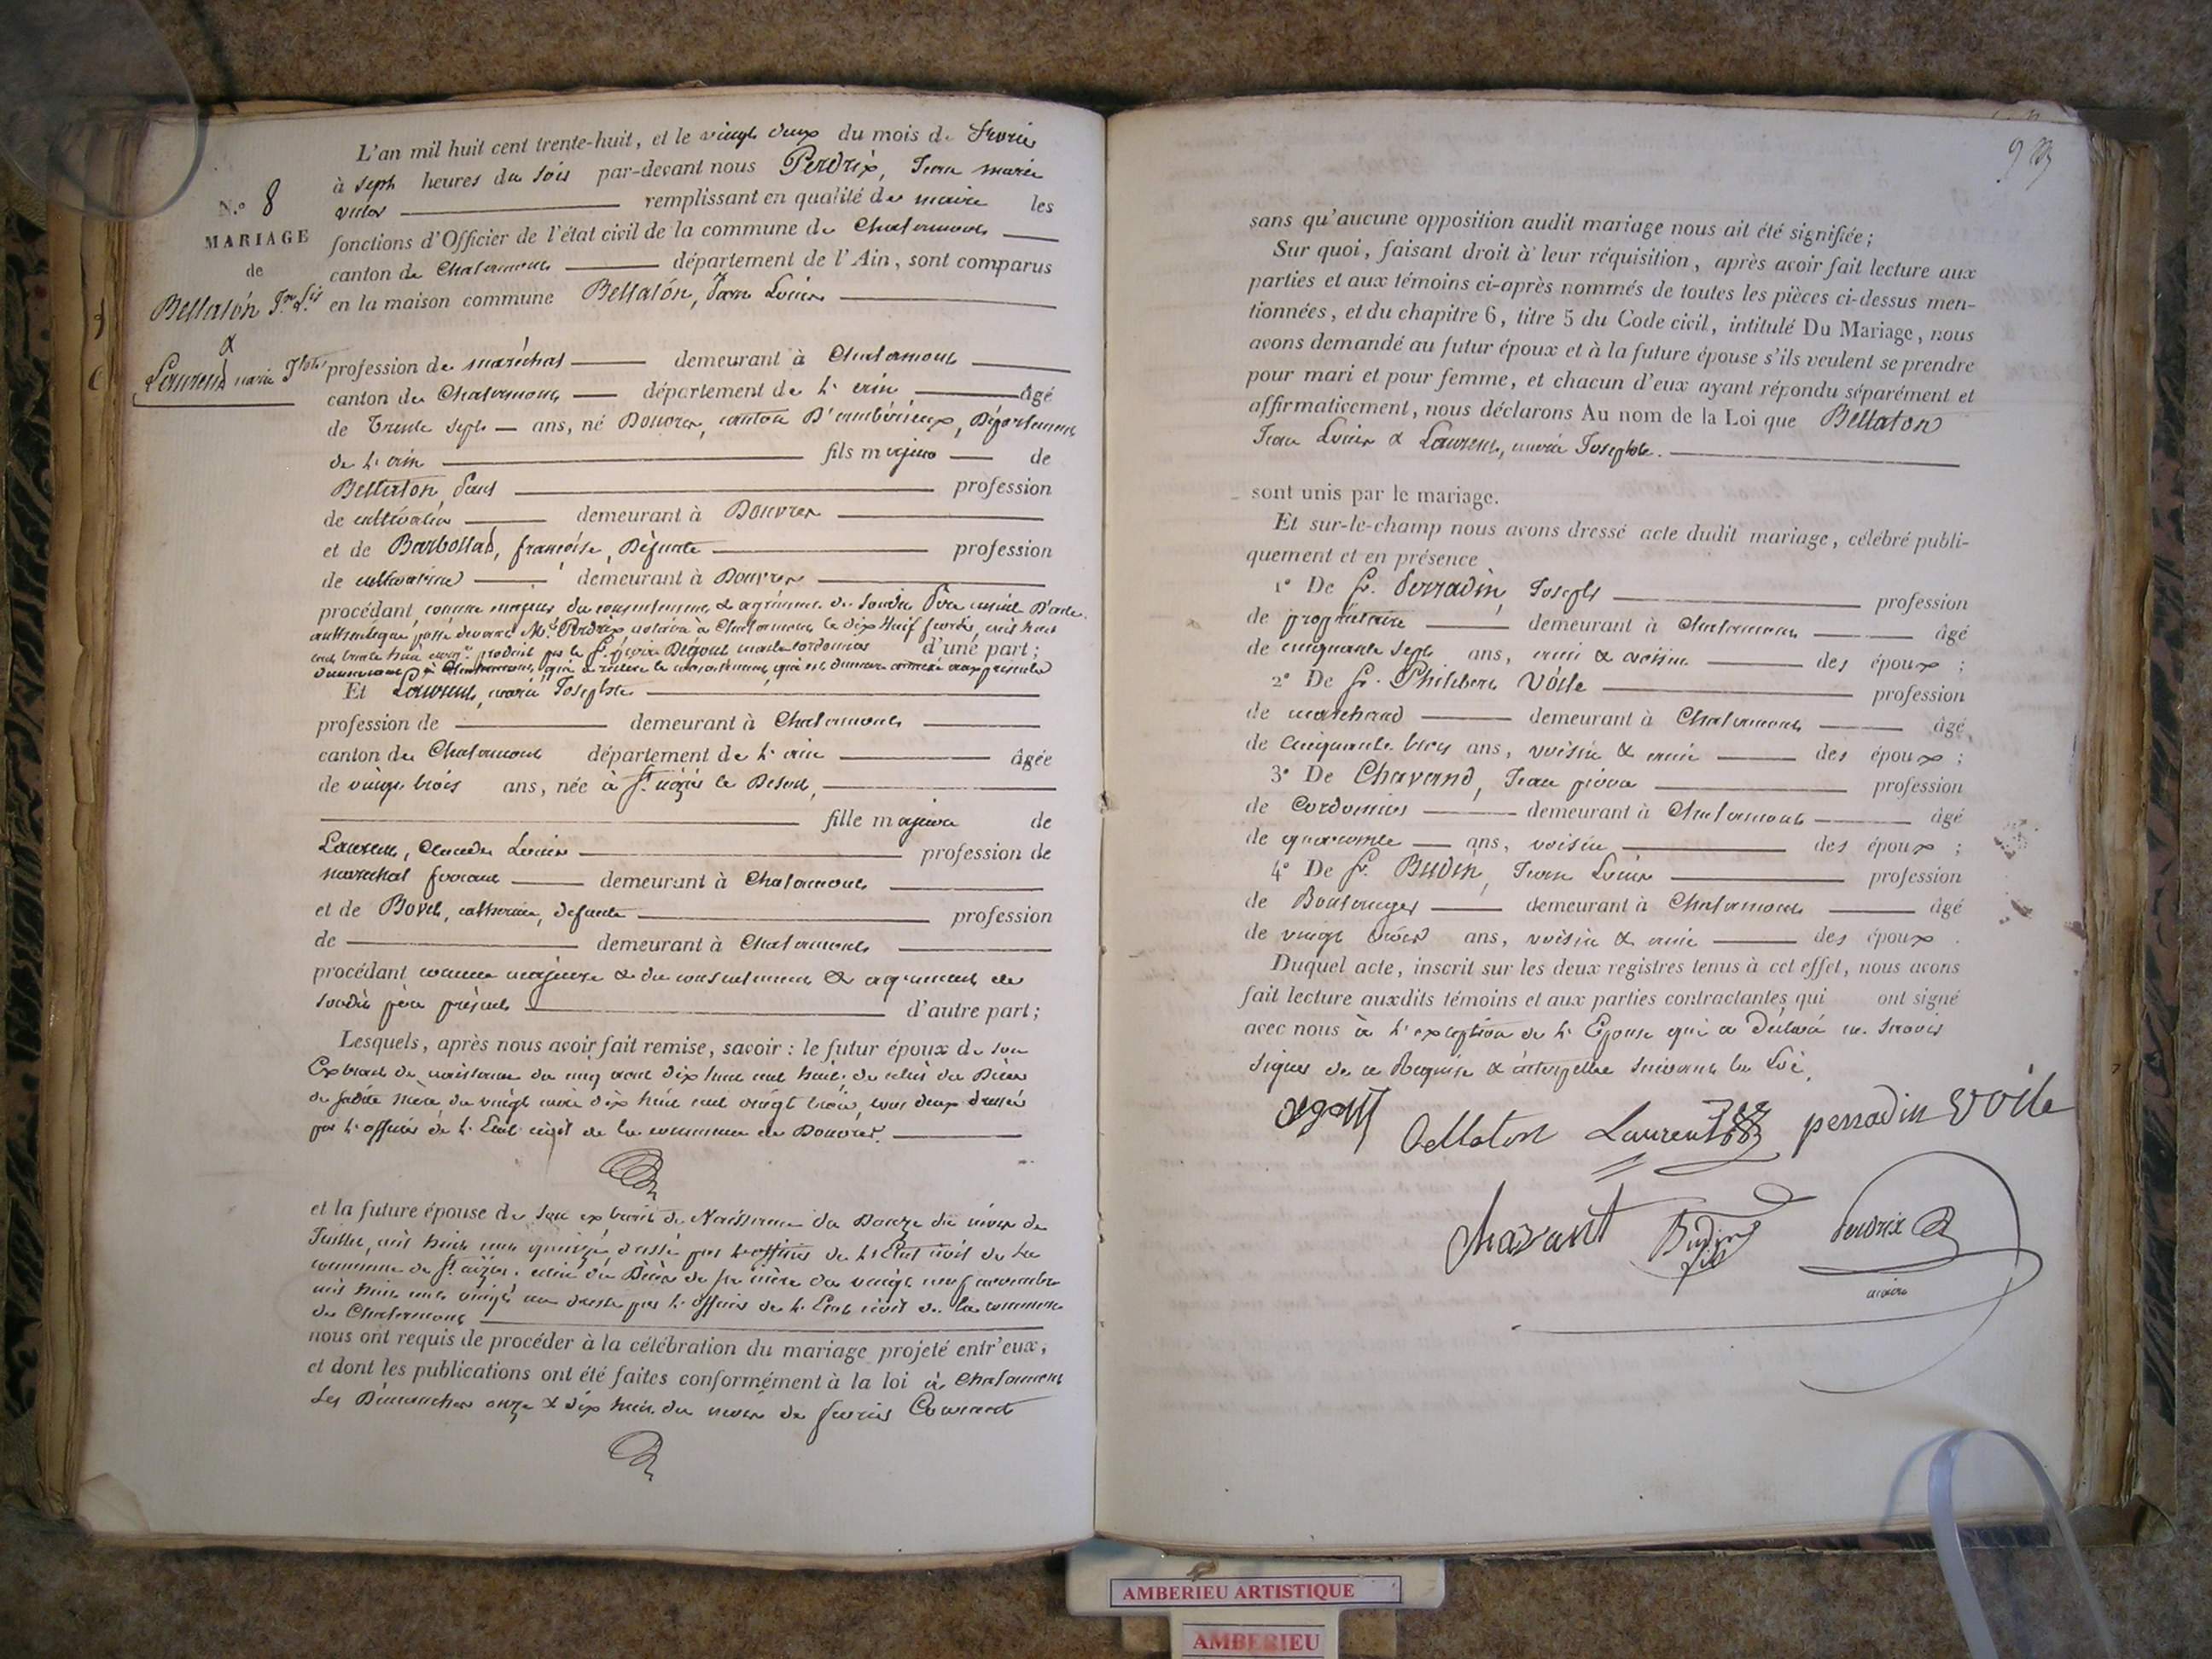 L'an mil huit cent trente-huit, et le vingt deux du mois de fevrier
à sept heures du soir par-devant nous Perdrix, Jean marie
victor remplissant en qualité de maire les
fonctions d'Officier de l'état civil de la commune de Chalamont
canton de Chalamont département de l'Ain, sont comparus
en la maison commune Bellaton, Jean Louis
N.º 8
MARIAGE
de
Bellaton Jn Ls
&
Laurent marie Jphte
profession de maréchal demeurant à Chalamont
canton de Chalamont département de l'ain âgé
de Trente sept ans, né Douvres, canton D'ambérieux, Département
de l'ain fils majeur de
Bellaton, Paul profession
de cultivateur demeurant à Douvres
et de Barbollat, françoise, Défunte profession
de cultivatrice demeurant à Douvres
procédant comme majeur du consentement & agrément de sondit Père suivant D'acte
authentique passé devant Me Perdrix, notaire à Chalamont le dix huit fevrier, mil huit
cent trente huit produit par le Sr pierre Dégout cordonnier d'une part;
demeurant à Chalamont, qui a le consentement, qui est demeuré annexé aux présentes
Et Laurent, marie Josephte
profession de demeurant à Chalamont
canton de Chalamont département de l'ain âgée
de vingt trois ans, née à St nizier le Desert,
fille majeure de
Laurent, Claude Louis profession de
maréchal ferrant demeurant à Chalamont
et de Bovet, catherine, defunte profession
de demeurant à Chalamont
procédant comme majeure & du consentement & agrément de
sondit père présent d'autre part;
Lesquels, après nous avoir fait remise, savoir : le futur époux de son
Extrait de naissance du cinq aout dix huit cent huit, de celui du Décès
de sadite mère, du vingt dix huit cent vingt trois, tous deux dressés
par l'officier de l'Etat civil de la commune de Douvres.
et la future épouse de son extrait de Naissance du Douze du mois de
Juillet, mil huit cent quinze, dressé par l'officier de l'Etat civil de la
commune de St nizier. celui du Décès de sa mère du vingt neuf novembre
mil huit cent vingt un dressé par l'officier de l'Etat civil de la commune
de Chalamont
nous ont requis de procéder à la célébration du mariage projeté entr'eux,
et dont les publications ont été faites conformément à la loi à Chalamont
Les Dimanches onze & dix huit du mois de fevrier Courant
sans qu'aucune opposition audit mariage nous ait été signifiée;
Sur quoi, faisant droit à leur réquisition, après avoir fait lecture aux
parties et aux témoins ci-après nommés de toutes les pièces ci-dessus men-
tionnées, et du chapitre 6, titre 5 du Code civil, intitulé Du Mariage, nous
avons demandé au futur époux et à la future épouse s'ils veulent se prendre
pour mari et pour femme, et chacun d'eux ayant répondu séparément et
affirmativement, nous déclarons Au nom de la Loi que Bellaton
Jean Louis & Laurent, marie Josephte.
sont unis par le mariage.
Et sur-le-champ nous avons dressé acte dudit mariage, célébré publi-
quement et en présence
1º De Sr. Perradin, Joseph profession
de propriétaire demeurant à Chalamont âgé
de cinquante sept ans, ami & voisin des époux ;
2º De Sr. Philibert Voile profession
de marchand demeurant à Chalamont âgé
de cinquante trois ans, voisin & ami des époux ;
3º De Chavand, Jean pierre profession
de Cordonnier demeurant à Chalamont âgé
de quarante ans, voisin des époux ;
4º De Sr. Budin, Jean Louis profession
de Boulanger demeurant à Chalamont âgé
de vingt trois ans, voisin & ami des époux.
Duquel acte, inscrit sur les deux registres tenus à cet effet, nous avons
fait lecture auxdits témoins et aux parties contractantes qui ont signé
avec nous à l'exception de l'Epouse qui a Déclaré ne savoir
signer de ce Requise & interpellée suivant la Loi.
degout Bellaton Laurent perradin Voile
Chavant Budin fils Perdrix
maire
AMBERIEU ARTISTIQUE
AMBERIEU